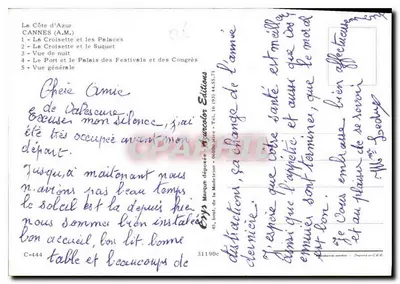 La Côte d'Azur
CANNES (A.M.)
1 - La Croisette et les Palaces
2 - La Croisette et le Suquet
3 - Vue de nuit
4 - Le Port et le Palais des Festivals et des Congrès
5 - Vue générale
Chère Amie
de Valescure
Excuses mon silence, j'ai
été très occupée avant mon
départ.
Jusqu'à maitonant nous
n'avions pas beau temps
le soleil est la depuis hier
nous somme bien installés
bon accueil, bon lit. bonne
table et beaucoups de
C-444
31190c
Erys Marque déposée Murcolor Editions
distractions, ça change de l'année
dernière.
J'espère que votre santé est meilleu
ainsi que l'appétit et aussi que vos
ennuies sont terminés, que le moral
est bon.
Je vous embrasse bien affectueuse
et au plaisir de se revoir
Mme
CPARAMA